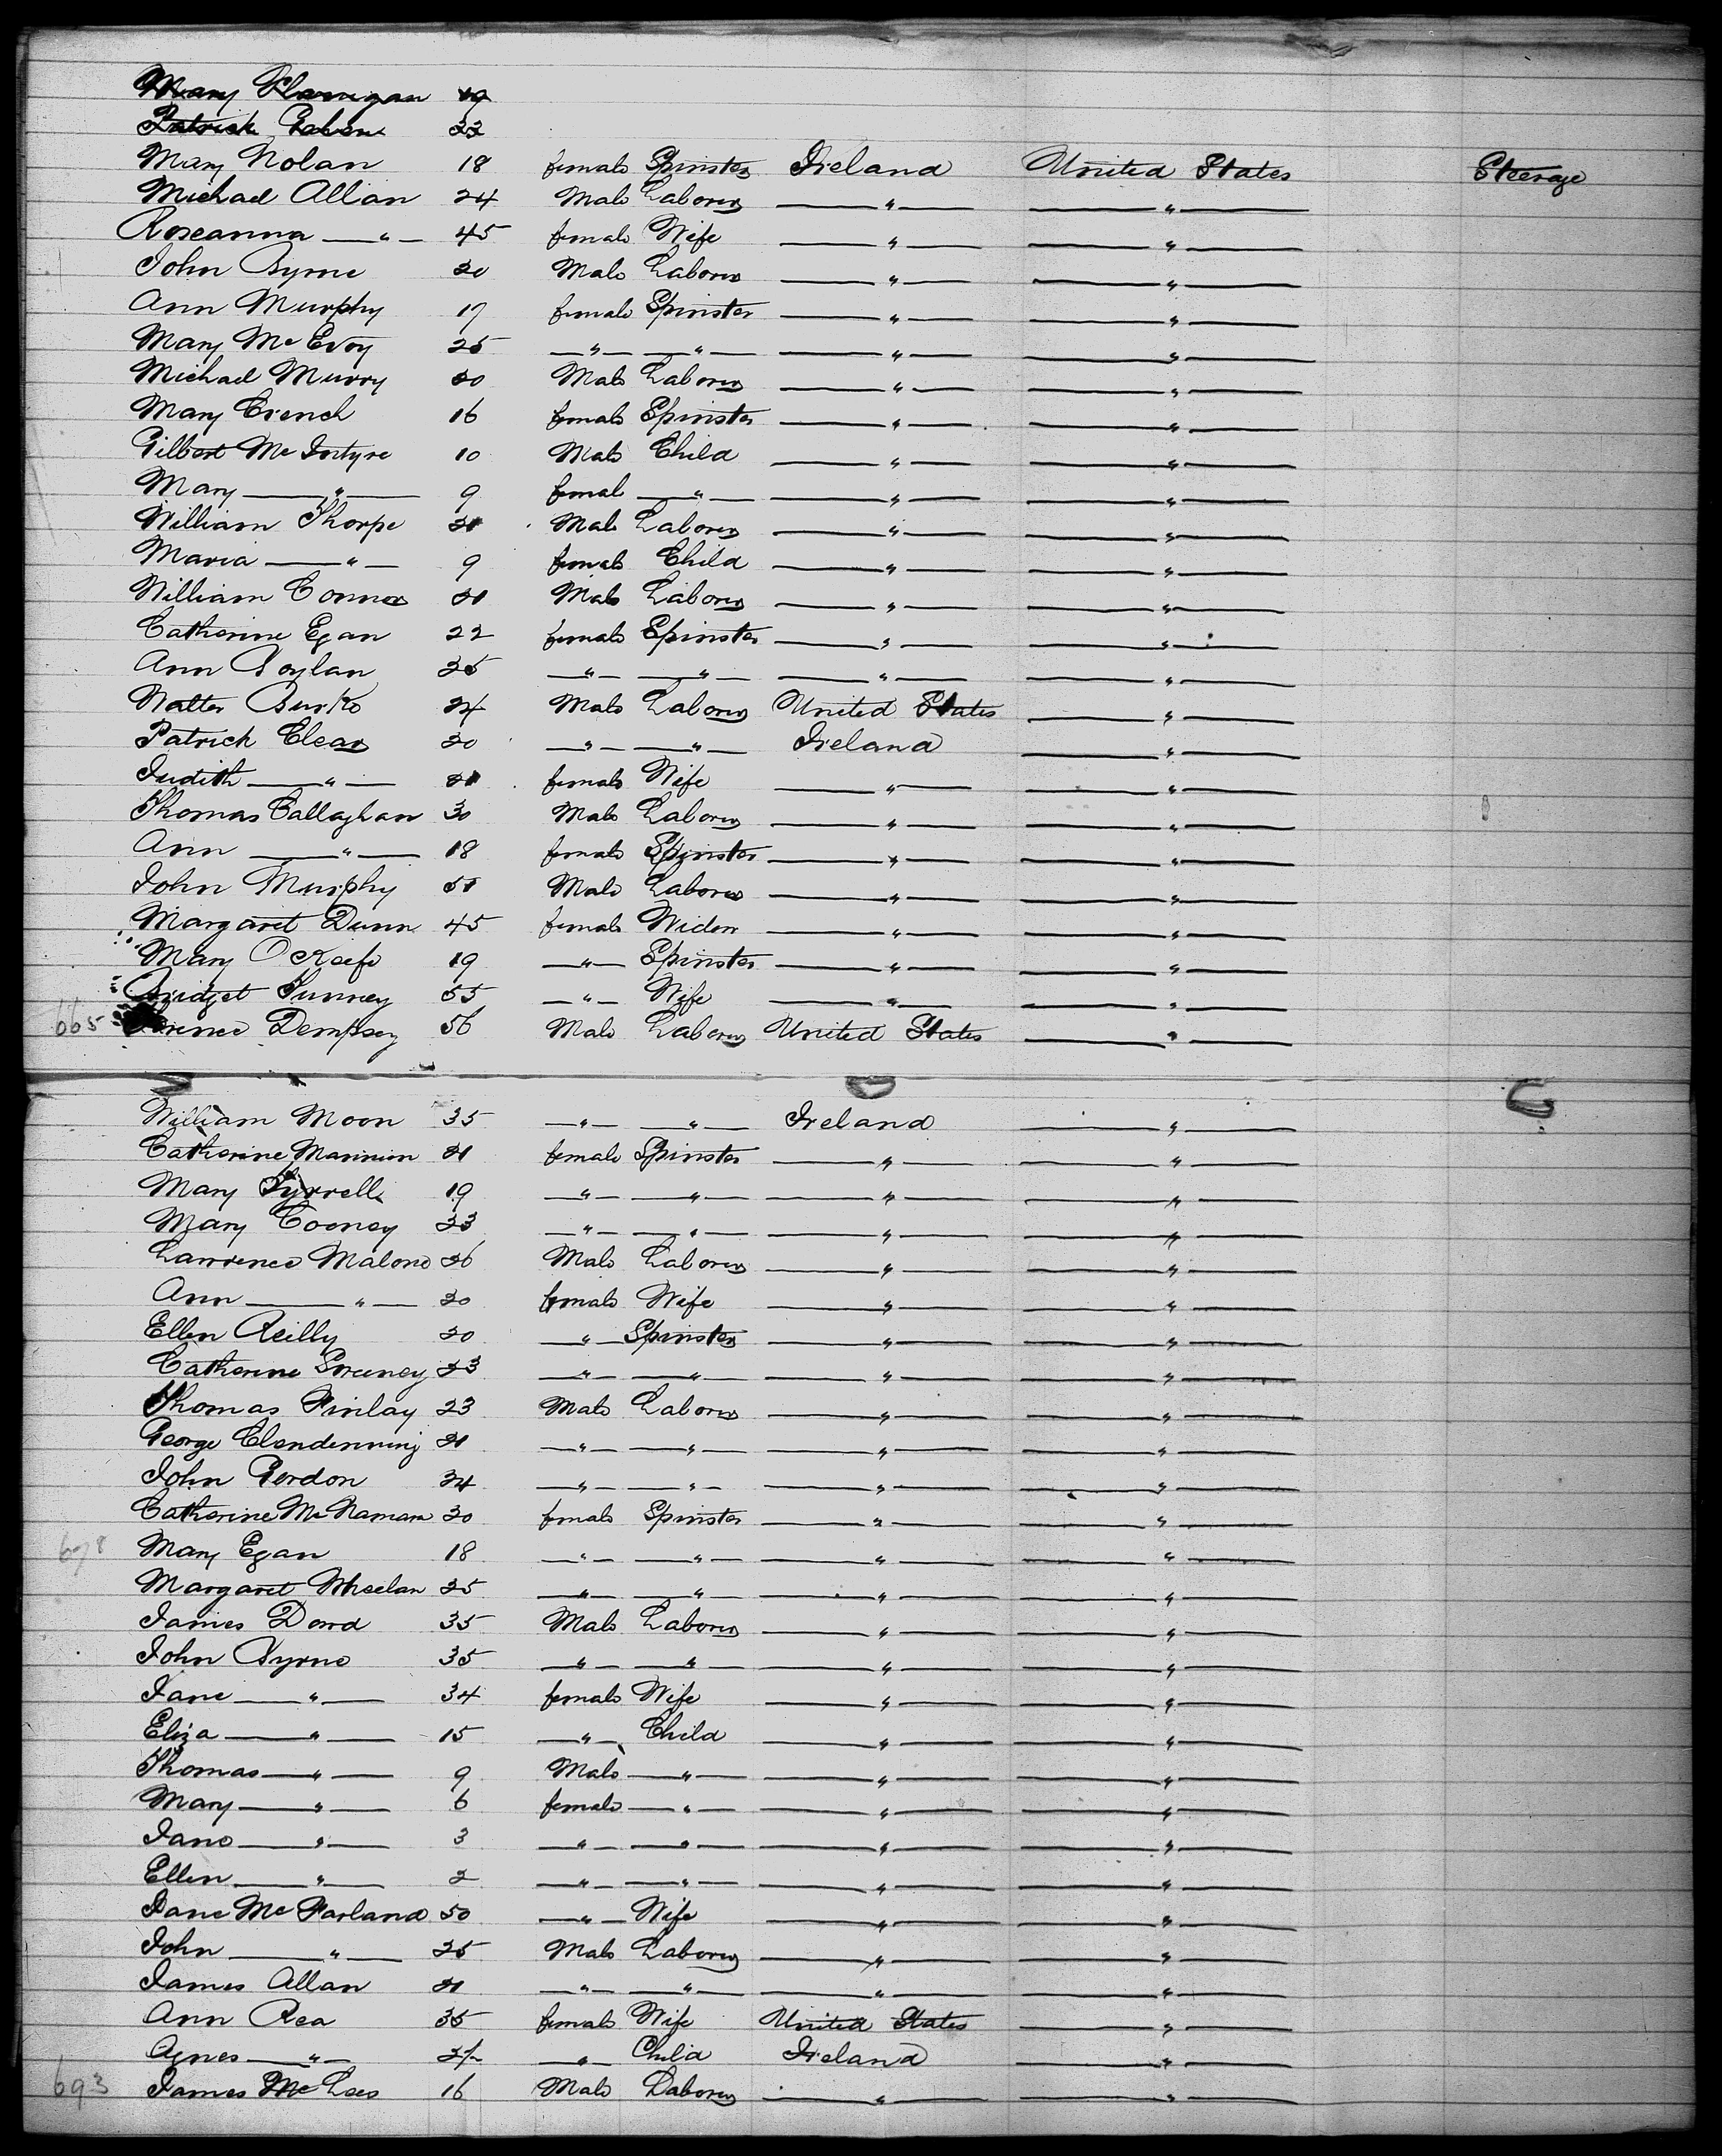 Mary Flanigan 19
Patrick 22
Mary Nolan 18 female Spinster Ireland United States Steerage
Michael Allan 24 Male Laborer " "
Roseanna " 45 female Wife " "
John Byrne 20 Male Laborer " "
Ann Murphy 17 female Spinster " "
Mary McEvoy 25 " " " "
Michael Murry 20 Male Laborer " "
Mary Crench 16 female Spinster " "
Gilbert McIntyre 10 Male Child " "
Mary " 9 femal " " "
William Thorpe 21 Male Laborer " "
Maria " 9 female Child " "
William Connor 21 Male Laborer " "
Catherine Egan 22 female Spinster " "
Ann Boylan 25 " " " "
Walter Burke 24 Male Laborer United States "
Patrick Clear 20 " " Ireland "
Judith " 21 female Wife " "
Thomas Callaghan 30 Male Laborer " "
Ann " 18 female Spinster " "
John Murphy 51 Male Laborer " "
Margaret Dunn 45 female Widow " "
Mary O Keefe 19 " Spinster " "
Bridget Tunney 55 " Wife " "
665 Dempsey 56 Male Laborer United States "
William Moon 35 " " Ireland "
Catherine Mannion 21 female Spinster " "
Mary Tyrrell 19 " " " "
Mary Cooney 23 " " " "
Lawrence Malone 26 Male Laborer " "
Ann " 20 female Wife " "
Ellen Reilly 20 " Spinster " "
Catherine Sweeney 23 " " " "
Thomas Finlay 23 Male Laborer " "
George Clendenning 21 " " " "
John Gordon 24 " " " "
Catherine McNamara 20 female Spinster " "
678 Mary Egan 18 " " " "
Margaret Wheelan 25 " " " "
James Dowd 35 Male Laborer " "
John Byrne 35 " " " "
Jane " 34 female Wife " "
Eliza " 15 " Child " "
Thomas " 9 Male " " "
Mary " 6 female " " "
Jane " 3 " " " "
Ellen " 2 " " " "
Jane McFarland 50 " Wife " "
John " 25 Male Laborer " "
James Allan 21 " " " "
Ann Rea 35 female Wife United States "
Agnes " " Child Ireland "
693 James McLees 16 Male Laborer " "